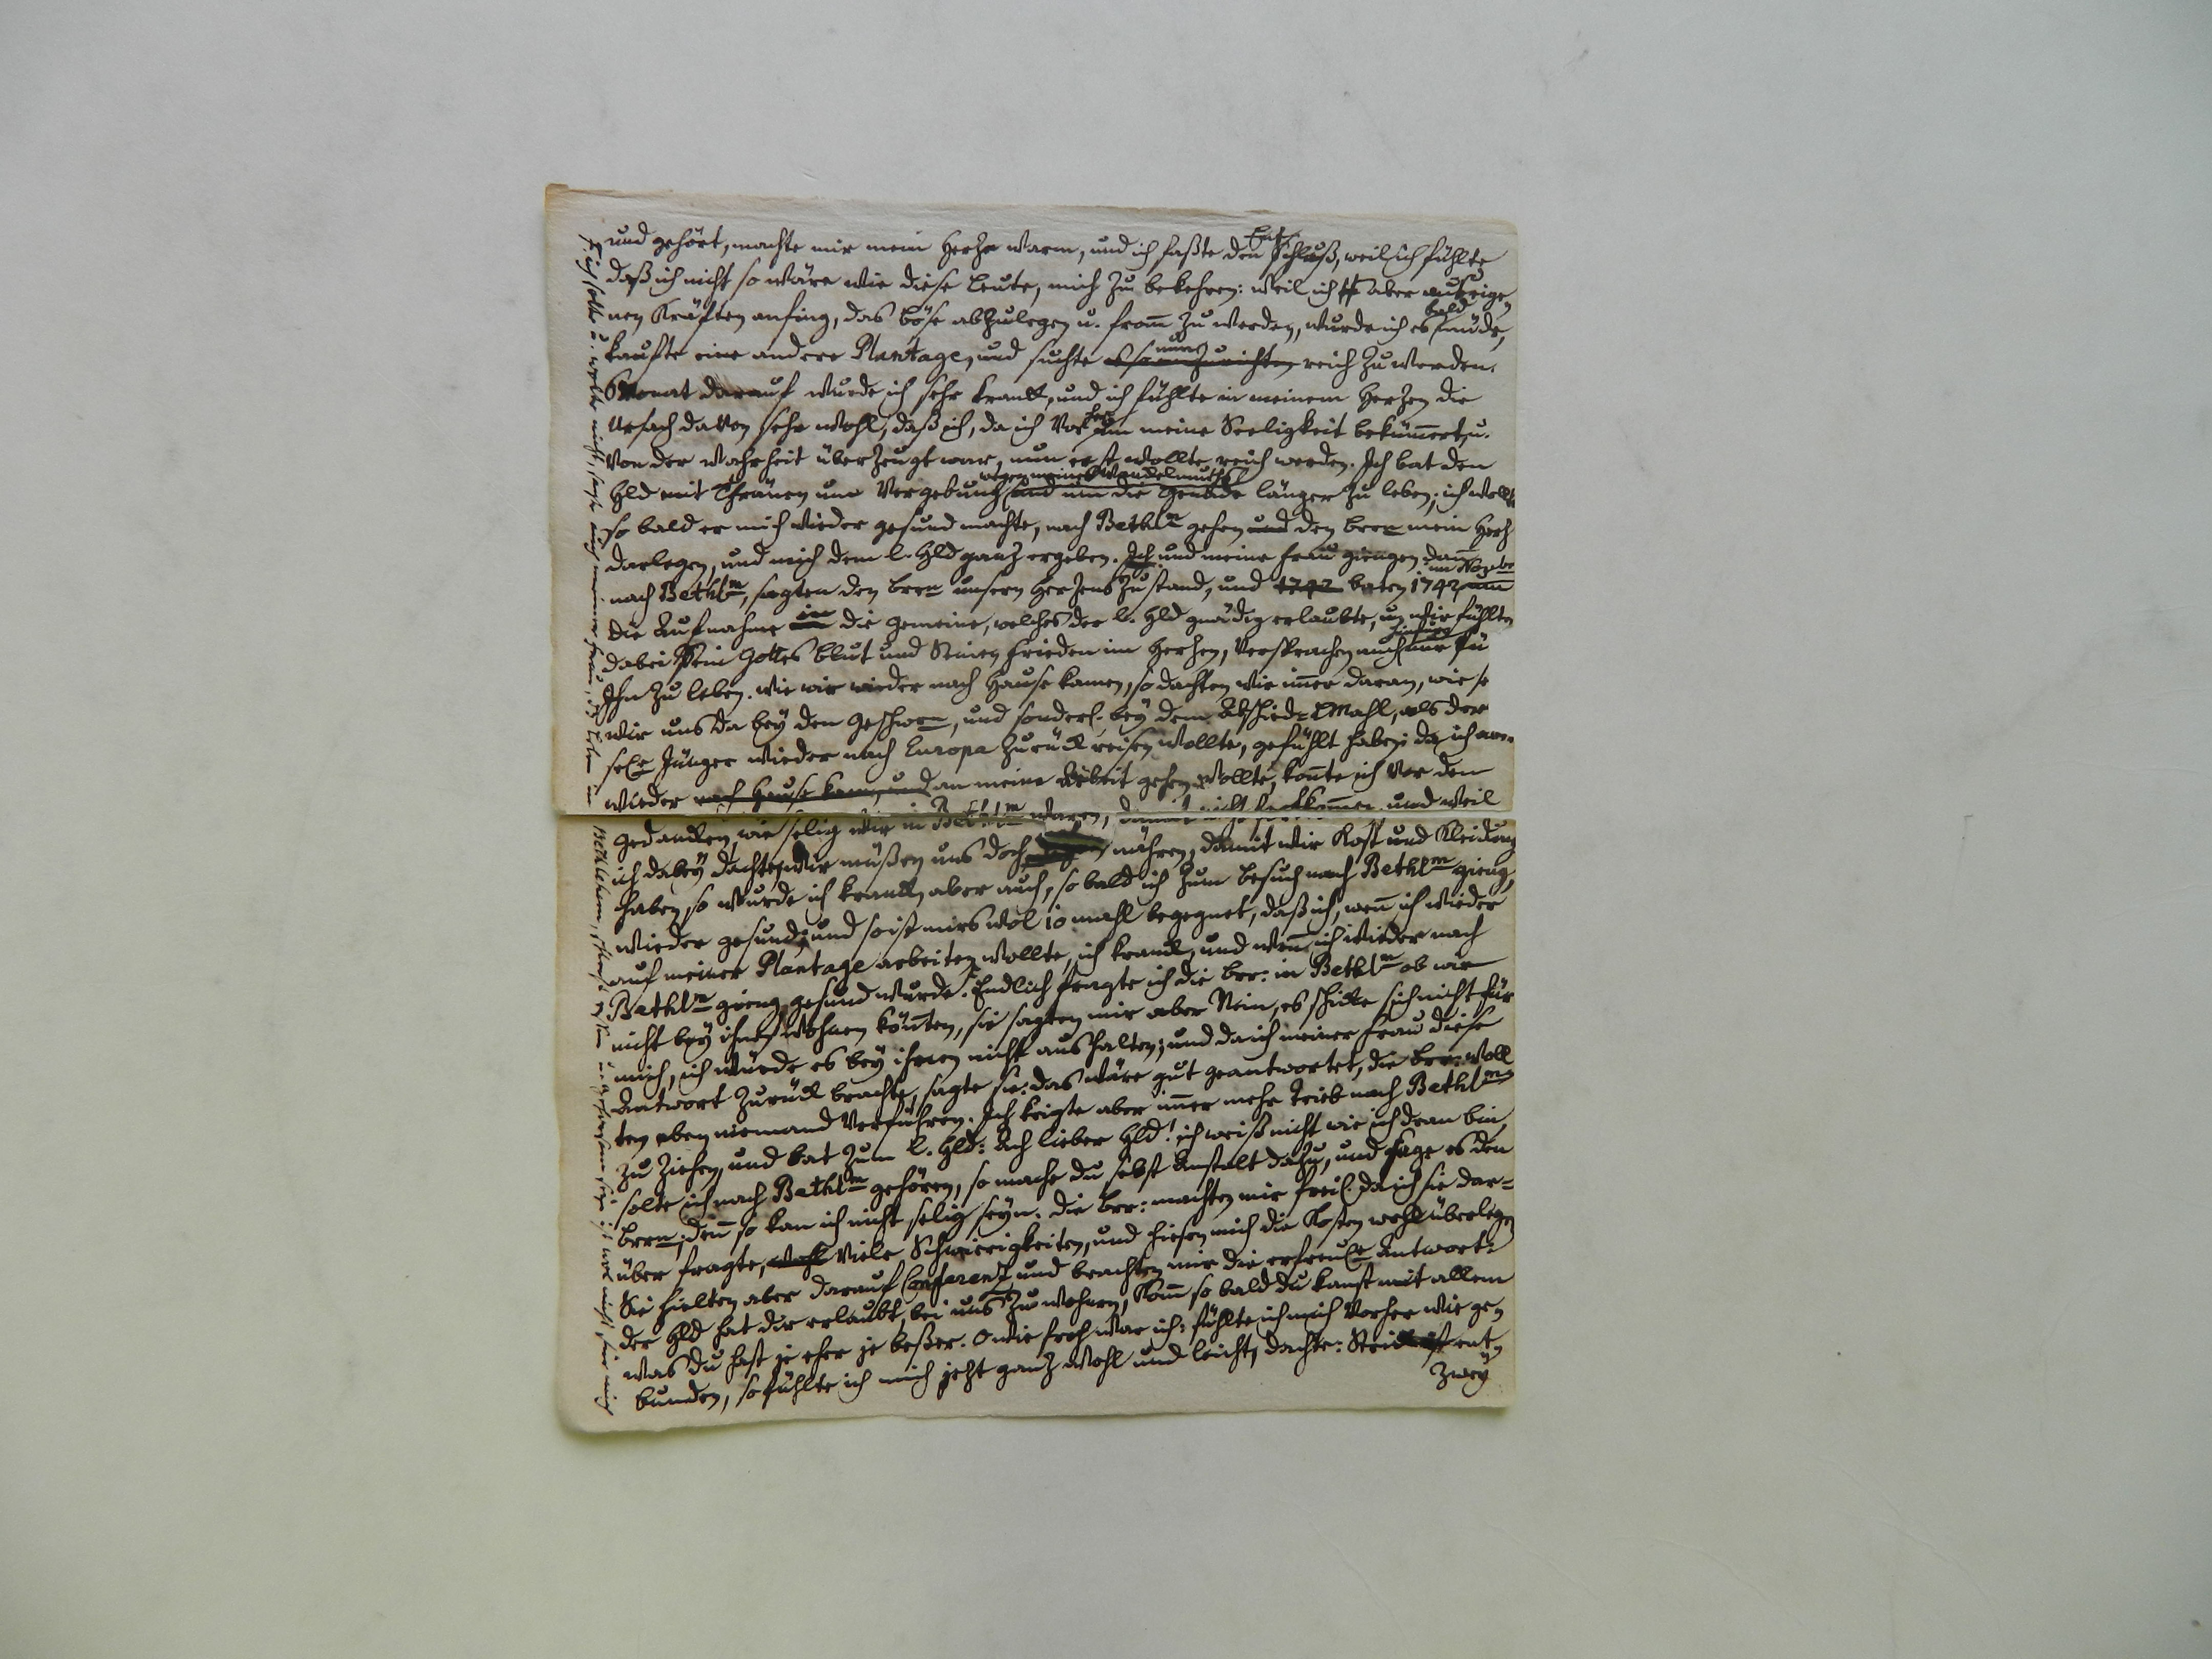 und gehört, machte mir mein Herze warm, und ich faßte den Entschluß, weil ich fühlte
daß ich nicht so wäre wie diese Leute, mich zu bekehren: weil ich aber aus eige-
nen Kräften anfing, das böse abzulegen u. from̅ zu werden, wurde ich es bald müde,
kaufte eine andere Plantage, und suchte nur reich zu werden.
6 Monat darauf wurde ich sehr kranck, und ich fühlte in meinem Herzen die
Ursach davon sehr wohl, daß ich, da ich vorher um meine Seeligkeit beküm̅ert, u.
von der Wahrheit überzeugt war, nun erst wollte reich werden. Ich bat den
Hld mit Thränen um Vergebung wegen meines Wandelmuths und um die Gnade länger zu leben; ich wollte
so bald er mich wieder gesund machte, nach Bethlm gehen und den Brrn mein Herz
darlegen, und mich dem l. Hld ganz ergeben. Ich und meine Frau giengen dan̅
nach Bethlm, sagten den Brrn unsern Herzens Zustand, und 1742 baten 1742 im Novbr um
die Aufnahme in die Gemeine, welches der l. Hld gnädig erlaubte, u. wir fühlten
dabei Sein Gottes Blut und Seinen Frieden im Herzen, versprachen auch hinfort nur für
Ihn zu leben. Wie wir wieder nach Hause kamen, so dachten wir im̅er daran, wie se
wir uns da bey den Geschwrn, und sonderl. bey dem Abschieds-LMahl, als der
sele Jünger wieder nach Europa zurück reisen wollte, gefühlt haben; da ich nun
wieder nach Hause kam, und an meine Arbeit gehen wollte, kon̅te ich vor dem
Gedancken, wie selig wir in Bethlm waren, damit nicht fortkom̅en und weil
ich dabey dachte, wir müßen uns doch nähren, damit wir Kost und Kleidung
haben, so wurde ich kranck, aber auch, so bald ich zum Besuch nach Bethlm gieng,
wieder gesund; und so ist mirs wol 10 mahl begegnet, daß ich, wen̅ ich wieder
auf meiner Plantage arbeiten wollte, ich kranck, und wen̅ ich wieder nach
Bethlm gieng, gesund wurde. Endlich fragte ich die Brr: in Bethlm ob wir
nicht bey ihnen wohnen kön̅ten, sie sagten mir aber Nein, es schicke sich nicht für
mich, ich würde es bey ihnen nicht aushalten; und da ich meiner Frau diese
Antwort zurück brachte, sagte sie: das wäre gut geantwortet, die Brr: woll
ten eben niemand verführen. Ich kriegte aber im̅er mehr Trieb nach Bethlm
zu ziehen, und bat zum l. Hld: Ach lieber Hld! ich weiß nicht wie ich dran bin,
solte ich nach Bethlm gehören, so mache du selbst Anstalt dazu, und sage es den
Brrn; den̅ so kan ich nicht selig seyn. Die Brr: machten mir freil. da ich sie dar-
über fragte, viele Schwierigkeiten, und hießen mich die Kosten wohl überlegen
Sie hielten aber darauf Conferenz und brachten mir die erfreule Antwort:
der Hld hat dir erlaubt, bei uns zu wohnen, Kom̅ so bald du kanst mit allem
was du hast je eher je beßer. O wie froh war ich: fühlte ich mich vorher wie ge-
bunden, so fühlte ich mich jetzt ganz wohl und leicht, dachte: Strick ist ent-
zwey
ich solte u. wolte nicht, sagte auch meiner Frau,
Bethlehem,